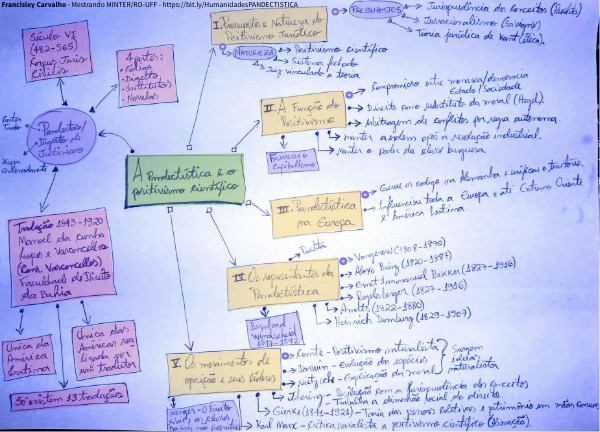 Francisley Carvalho - Mestrando MINTER/RO-UFF - https://bit.ly/HumanidadesPANDECTISTICA
Século VI
(482-565)
Corpus Juris
Civilis
4 partes:
• Código
• Digesto
• Institutos
• Novelas
Conter
Tudo
Pandectas/
Digesto
Justiniano
A Pandectística e o
positivismo científico
Tradução 1943-1920
Manoel da Cunha
Lopes e Vasconcellos
(Cons. Vasconcellos)
Faculdade de Direito
da Bahia
Única da
América
Latina
Única das
Américas rea
lizada por
um tradutor
Só existem 13 traduções
I. Pressupostos e Natureza do
Positivismo Jurídico
PRESSUPOSTOS
Jurisprudência do Conceitos (Puchta)
Jusracionalismo (Savigny)
Teoria jurídica de Kant (ética).
NATUREZA
Positivismo científico
Sistema fechado
Juiz vinculado a teoria
II. A Função do
Positivismo
Compromisso entre monarca/democracia
Estado/Sociedade
Direito como substituto da moral (Hegel).
Arbitragem de conflitos por regra autônoma.
Manter a ordem após a revolução industrial.
Manter o poder da classe burguesa
Favorecer o
Capitalismo
III. Pandectística
na Europa
Criou os código na Alemanha e unificou o território.
Influenciou toda a Europa e até Extremo Oriente
e América Latina.
IV. Os representantes da
Pandectística
Puchta
Vangerow (1808-1870)
Aloys Brinz (1820-1887)
Ernst Immanuel Bekker (1827-1916)
Regelsberger (1827-1916)
Arndts (1822-1880)
Heinrich Dernburg (1829-1907)
Bernhard
Windscheid
1817-1892
V. Os movimentos de
oposição e seus líderes
Comte - Positivismo naturalista
Darwin - Evolução da espécies
Nietzsche - Explicação da moral
Surgem
ideias
naturalista
Ihering - Desilusão com a jurisprudência dos conceitos
Trabalha a dimensão social do direito.
Gierke (1841-1921) - Teoria das pessoas coletivas e patrimônio em mãos comum
Karl Marx - Crítica socialista a positivismo científico (Alienação)